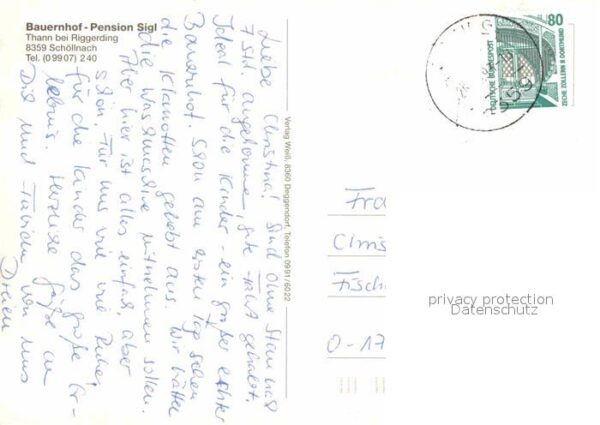 Bauernhof - Pension Sigl
Thann bei Riggerding
8359 Schöllnach
Tel. (0 99 07) 2 40
Liebe Christina! Sind ohne Stau nach
7 Std. angekommen, gute Fahrt gehabt.
Ideal für die Kinder - ein großer echter
Bauernhof. Schon am ersten Tag sehen
die Klamotten gelebt aus. Wir hätten
die Waschmaschine mitnehmen sollen.
Aber hier ist alles einfach, aber
schön. Für uns wie die Ruhe,
für die Kinder das große Er-
lebnis. Herzliche Grüße an
Dich und von uns
Dreien
Verlag Weiß, 8360 Deggendorf, Telefon 0991/6022
80
DEUTSCHE BUNDESPOST
ZECHE ZOLLERN II DORTMUND
Fra
Chris
Fisch
O-17
privacy protection
Datenschutz